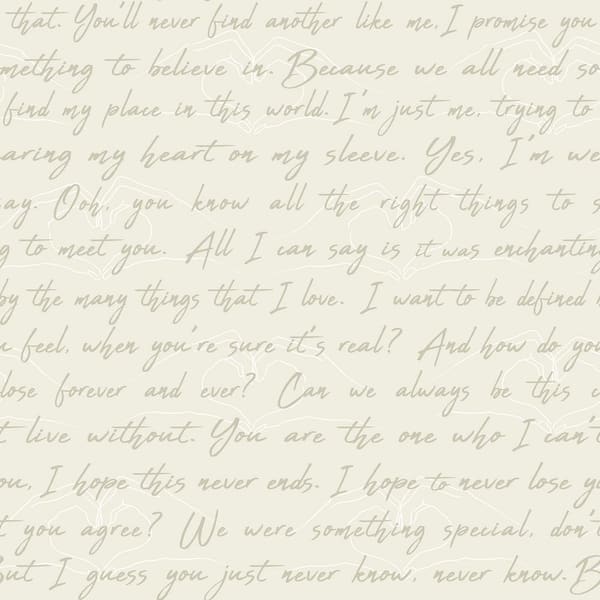 that. You'll never find another like me. I promise you
mething to believe in. Because we all need so
find my place in this world. I'm just me, trying to
aring my heart on my sleeve. Yes, I'm we
ay. Ooh, you know all the right things to s
g to meet you. All I can say is it was enchanting
by the many things that I love. I want to be defined
u feel, when you're sure it's real? And how do you
lose forever and ever? Can we always be this
t live without. You are the one who I can't
ou, I hope this never ends. I hope to never lose yo
t you agree? We were something special, don't
But I guess you just never know, never know. B